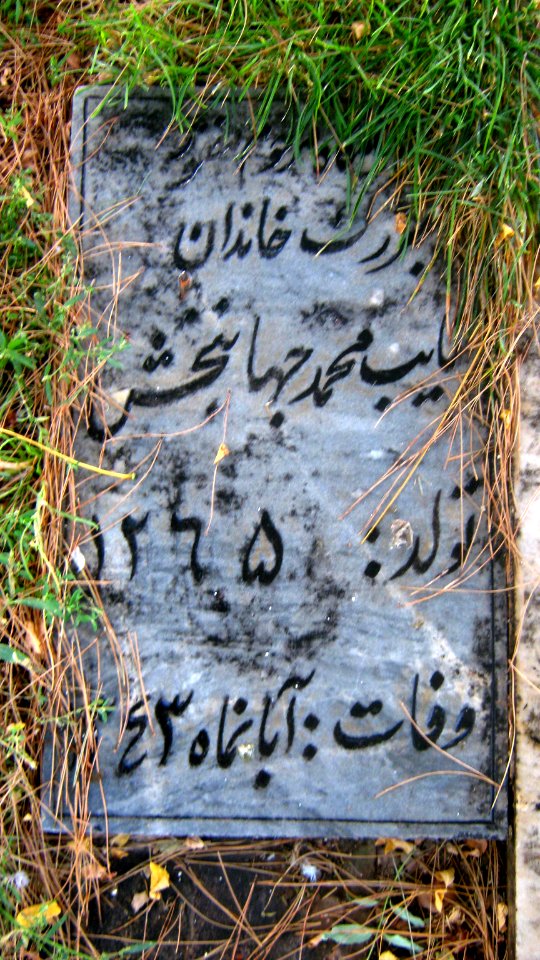 بزرگ خاندان
نایب محمد جهانبخش
تولد : ۱۲۶۵
وفات : آبانماه ۴۳